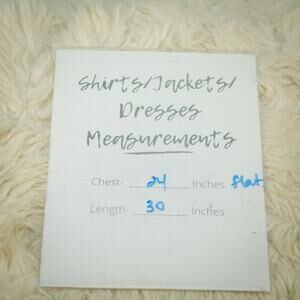 Shirts/Jackets/
Dresses
Measurements
Chest- 24 Inches flat
Length- 30 Inches